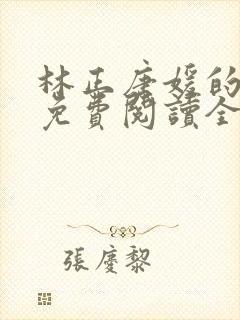 林正唐媛的
免費閱讀全
張慶黎